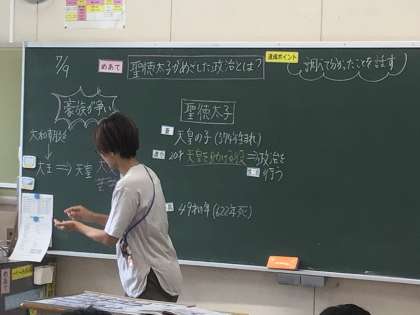 7/9
めあて 聖徳太子がめざした政治とは?
達成ポイント
調べて分かったことを話す
豪族が争い
聖徳太子
天皇の子(574年生まれ)
大和朝廷
大王⇒天皇
20才 天皇を助ける役⇒政治を
行う
49才(622年死)